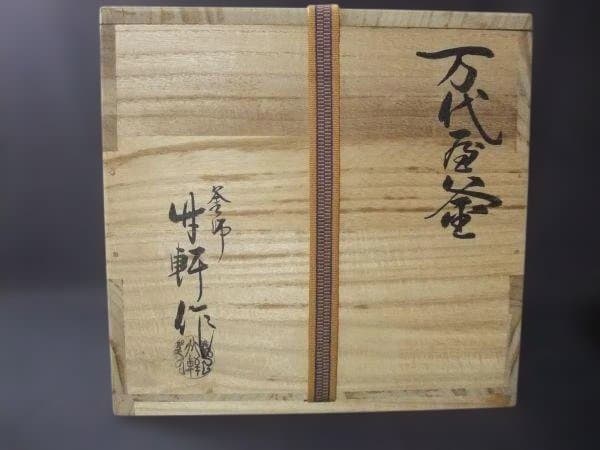 万代屋釜
釜師
竹軒作